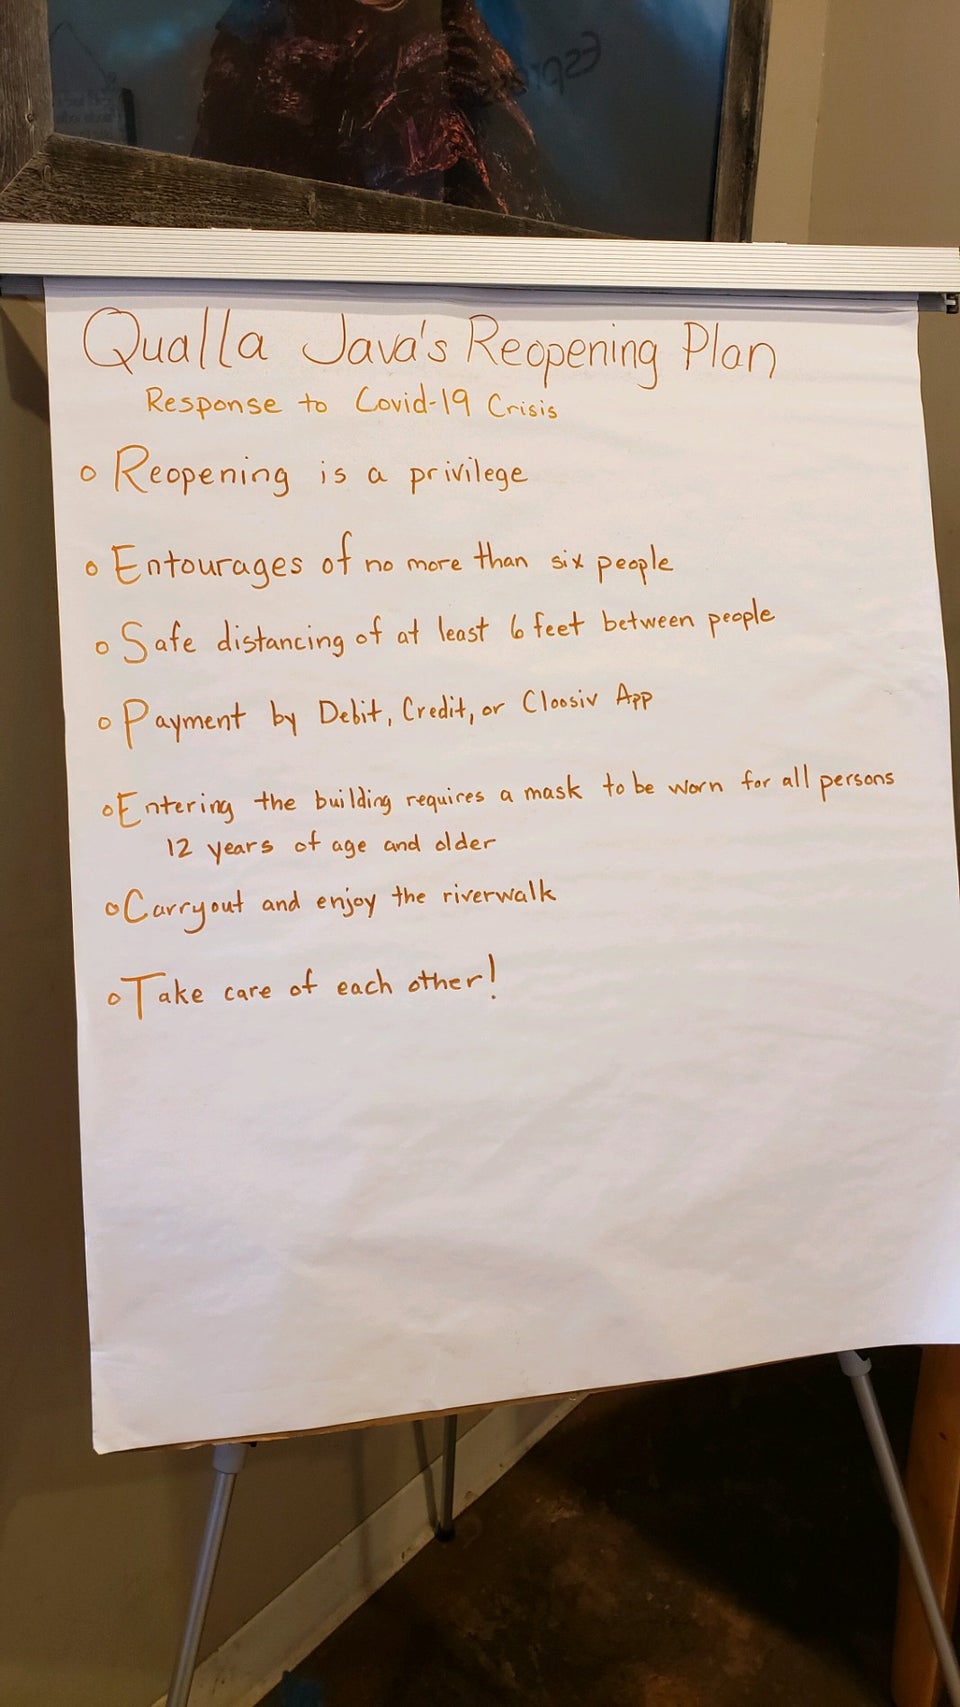 Qualla Java's Reopening Plan
Response to Covid-19 Crisis
o Reopening is a privilege
o Entourages of no more than six people
o Safe distancing of at least 6 feet between people
o Payment by Debit, Credit, or Cloosiv App
o Entering the building requires a mask to be worn for all persons
12 years of age and older
o Carryout and enjoy the riverwalk
o Take care of each other!